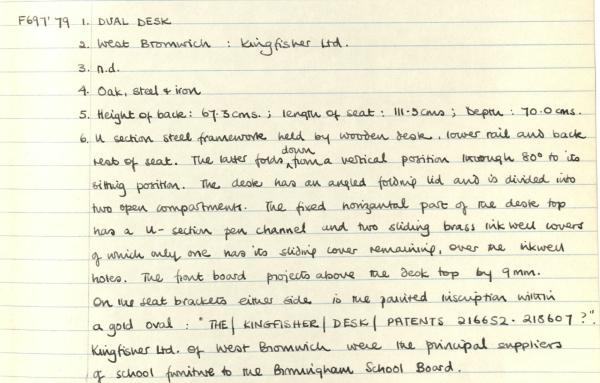 F697'79 1. DUAL DESK
2. West Bromwich : Kingfisher Ltd.
3. n.d.
4. Oak, steel + iron
5. Height of back: 67.3cms. ; length of seat : 111.5cms ; Depth : 70.0cms.
6. U section steel framework held by wooden desk, lower rail and back
rest of seat. The latter folds down from a vertical position through 80° to its
sitting position. The desk has an angled folding lid and is divided into
two open compartments. The fixed horizontal part of the desk top
has a U-section pen channel and two sliding brass inkwell covers
of which only one has its sliding cover remaining, over the inkwell
holes. The front board projects above the desk top by 9mm.
On the seat brackets either side is the painted inscription within
a gold oval : "THE/ KINGFISHER/ DESK/ PATENTS 216652. 218607?".
Kingfisher Ltd. of West Bromwich were the principal suppliers
of school furniture to the Birmingham School Board.